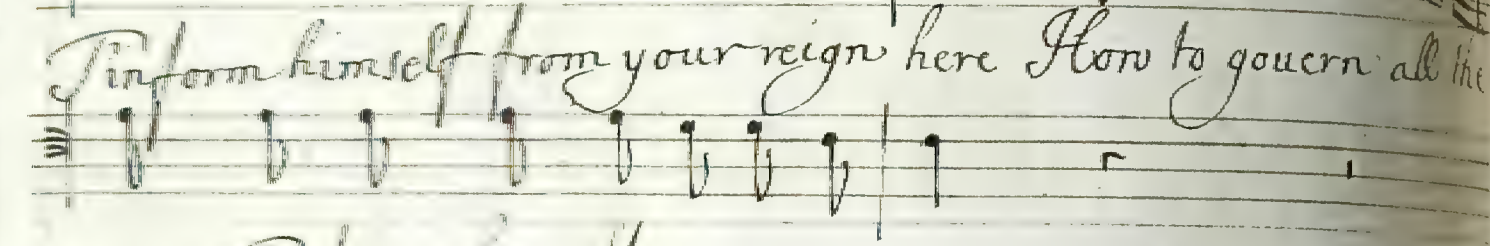 T'inform himself from your reign here How to gouern all the